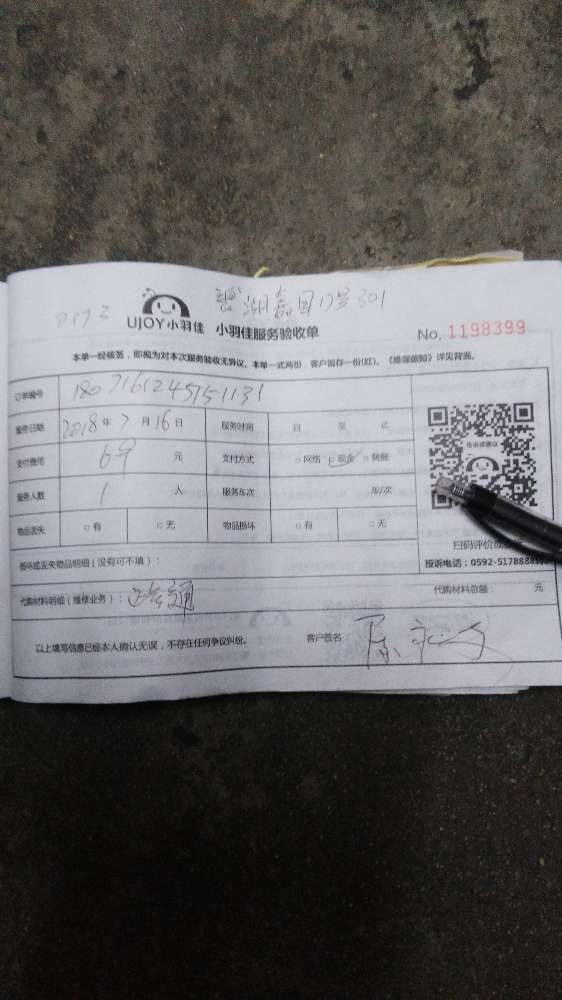 湖 17号301
UJOY小羽佳 小羽佳服务验收单
No. 1198399
本单一经核签，即视为对本次服务验收无异议。本单一式两份，客户留存一份(红)。《维保须知》详见背面。
订单编号
服务日期 2018年7月16日 服务时间 自 至 止
支付费用 元 支付方式 □网络 □现金 □转账
服务人数 1 人 服务车次 车/次
物品丢失 □有 □无 物品损坏 □有 □无
扫码评价或
投诉电话：0592-5178888
损坏或丢失物品明细（没有可不填）：
代购材料明细（维修业务）： 通
代购材料总额： 元
以上填写信息已经本人确认无误，不存在任何争议纠纷。 客户签名：